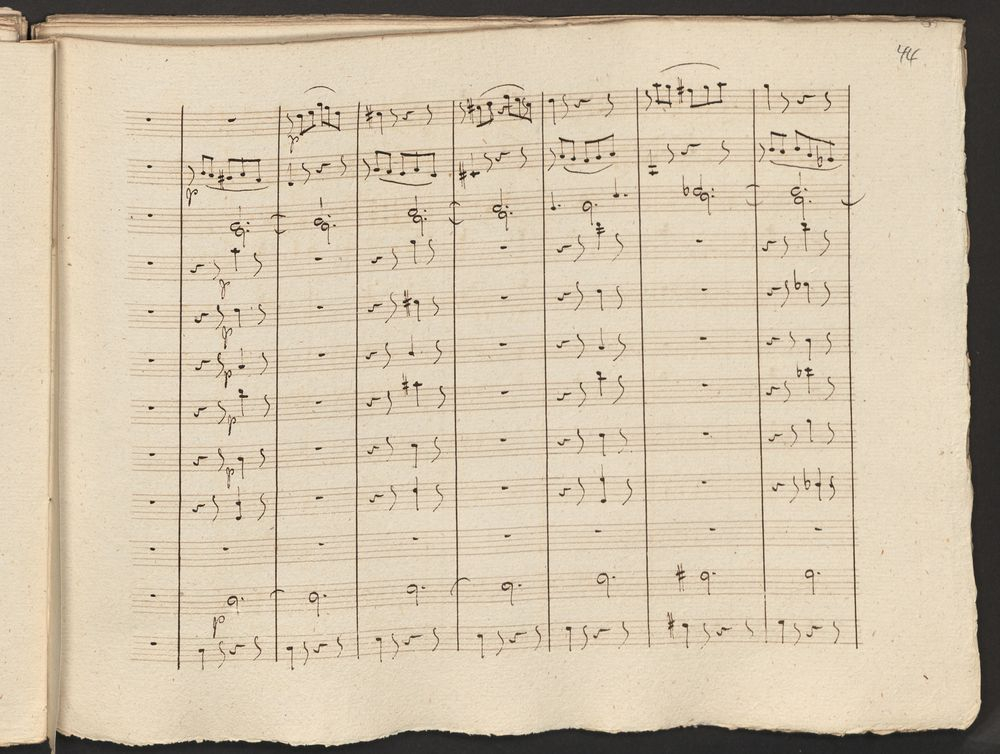 44
p
p
p
p
p
p
p
p